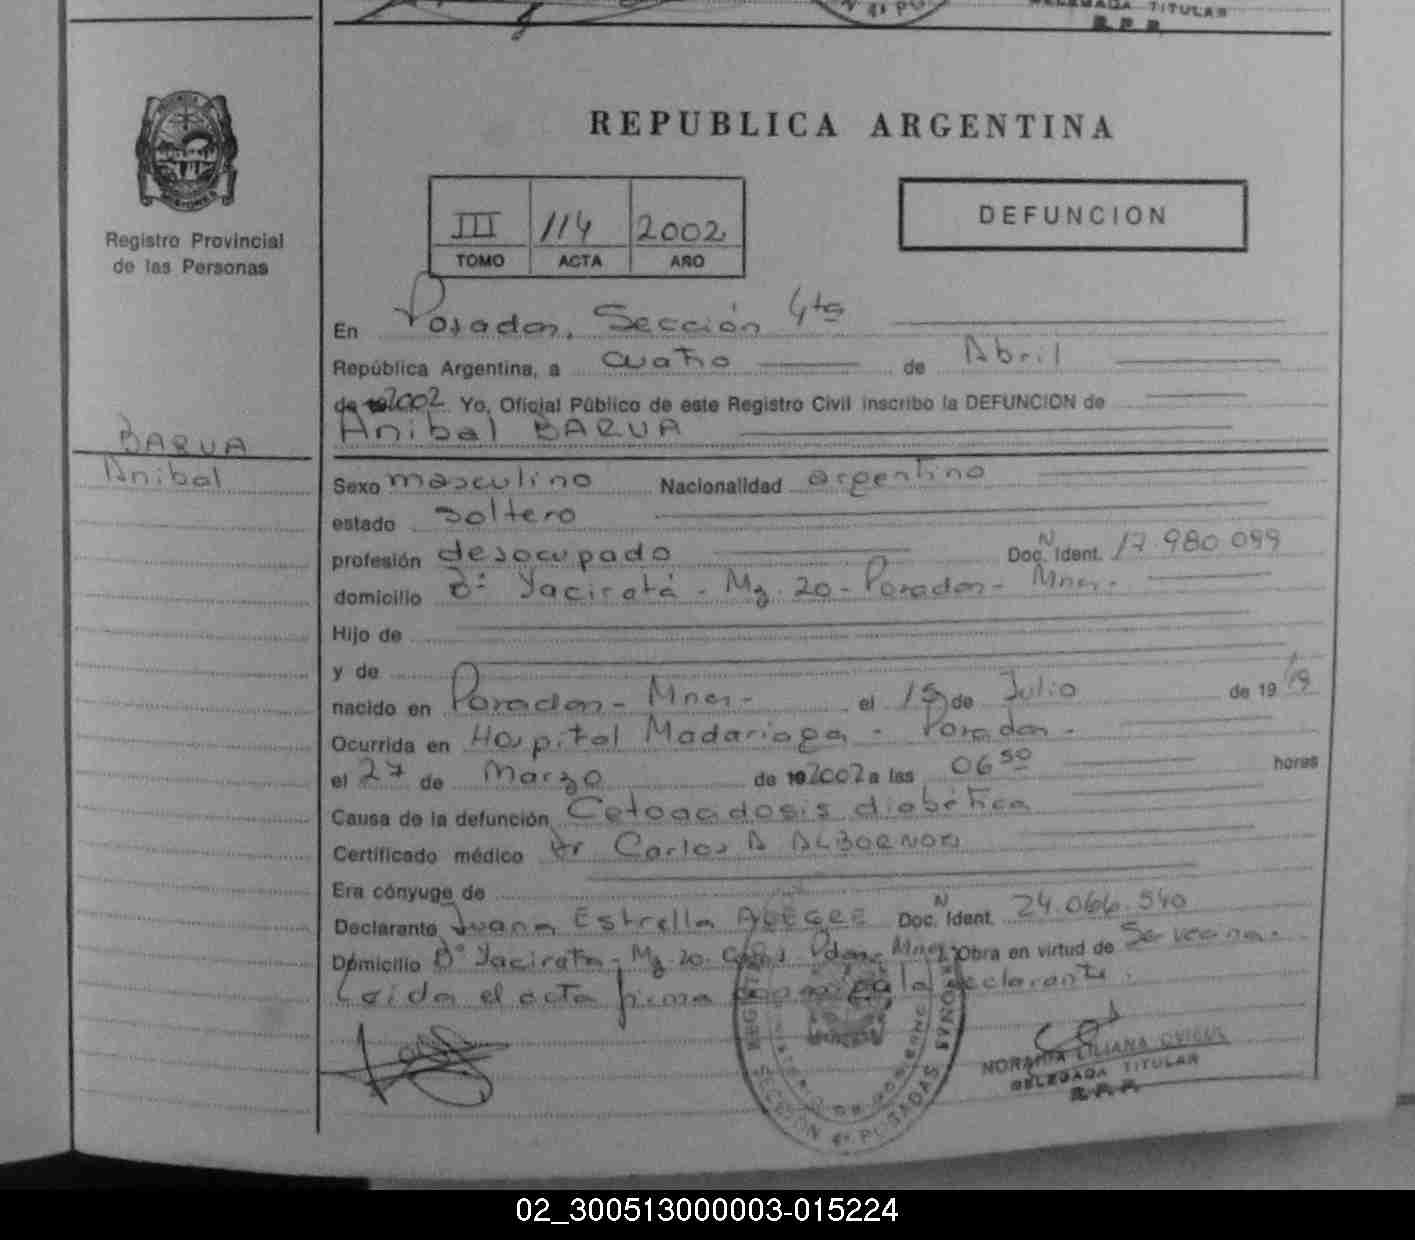 DELEGADA TITULAR
R.P.P.
REPUBLICA ARGENTINA
Registro Provincial
de las Personas
III 114 2002
TOMO ACTA AÑO
DEFUNCION
En Posadas, Sección 4ta
República Argentina, a cuatro de Abril
de 2002 Yo, Oficial Público de este Registro Civil inscribo la DEFUNCION de
Anibal BARUA
BARUA
Anibal
Sexo masculino Nacionalidad argentino
estado soltero
profesión desocupado Doc. N Ident. 17.980.099
domicilio Bº Yaciratá - Mz. 20 - Posadas - Mnes.
Hijo de
y de
nacido en Posadas - Mnes - el 15 de Julio de 19
Ocurrida en Hospital Madariaga - Posadas -
el 27 de Marzo de 2002 a las 06 50 horas
Causa de la defunción Cetoacidosis diabética
Certificado médico Dr Carlos A ALBORNOZ
Era cónyuge de
Declarante Juana Estrella Doc. N Ident. 24.066.540
Domicilio Bº Yacirata - Mz. 20. Pdas. Mnes. Obra en virtud de
Leida el acta firma la declarante.
SECCION 4ª POSADAS
NORMA LILIANA
DELEGADA TITULAR
R.P.P.
02_300513000003-015224